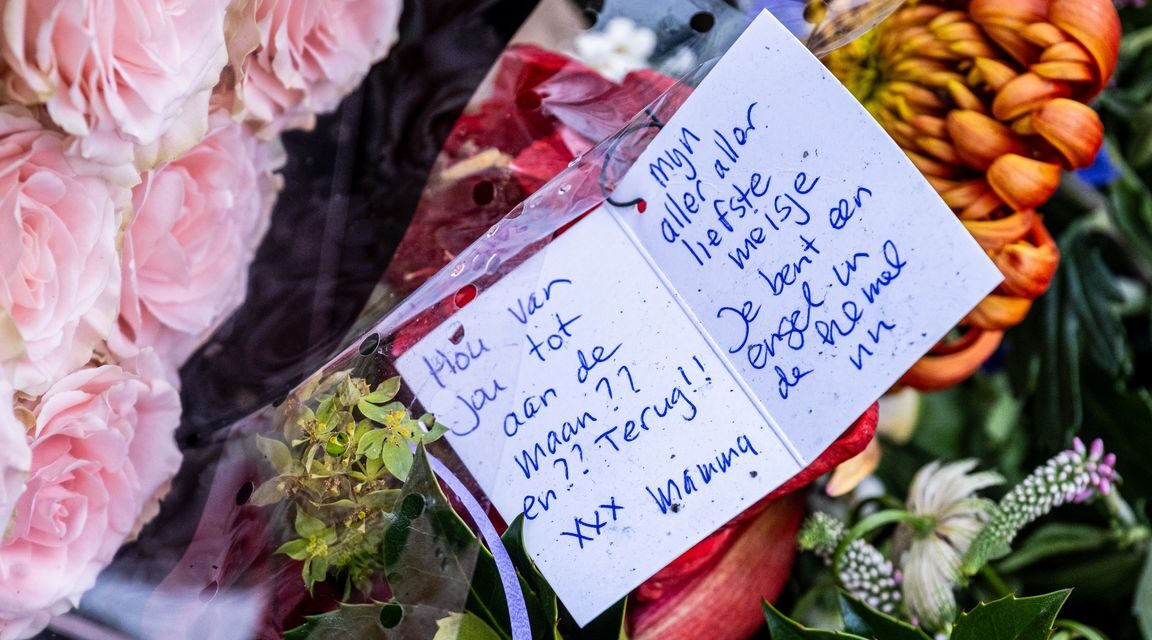 Mijn
aller aller
liefste
meisje
Je bent een
engel in
de hemel
nu
Hou van
Jou tot
aan de
maan??
en?? Terug!!
xxx Mamma